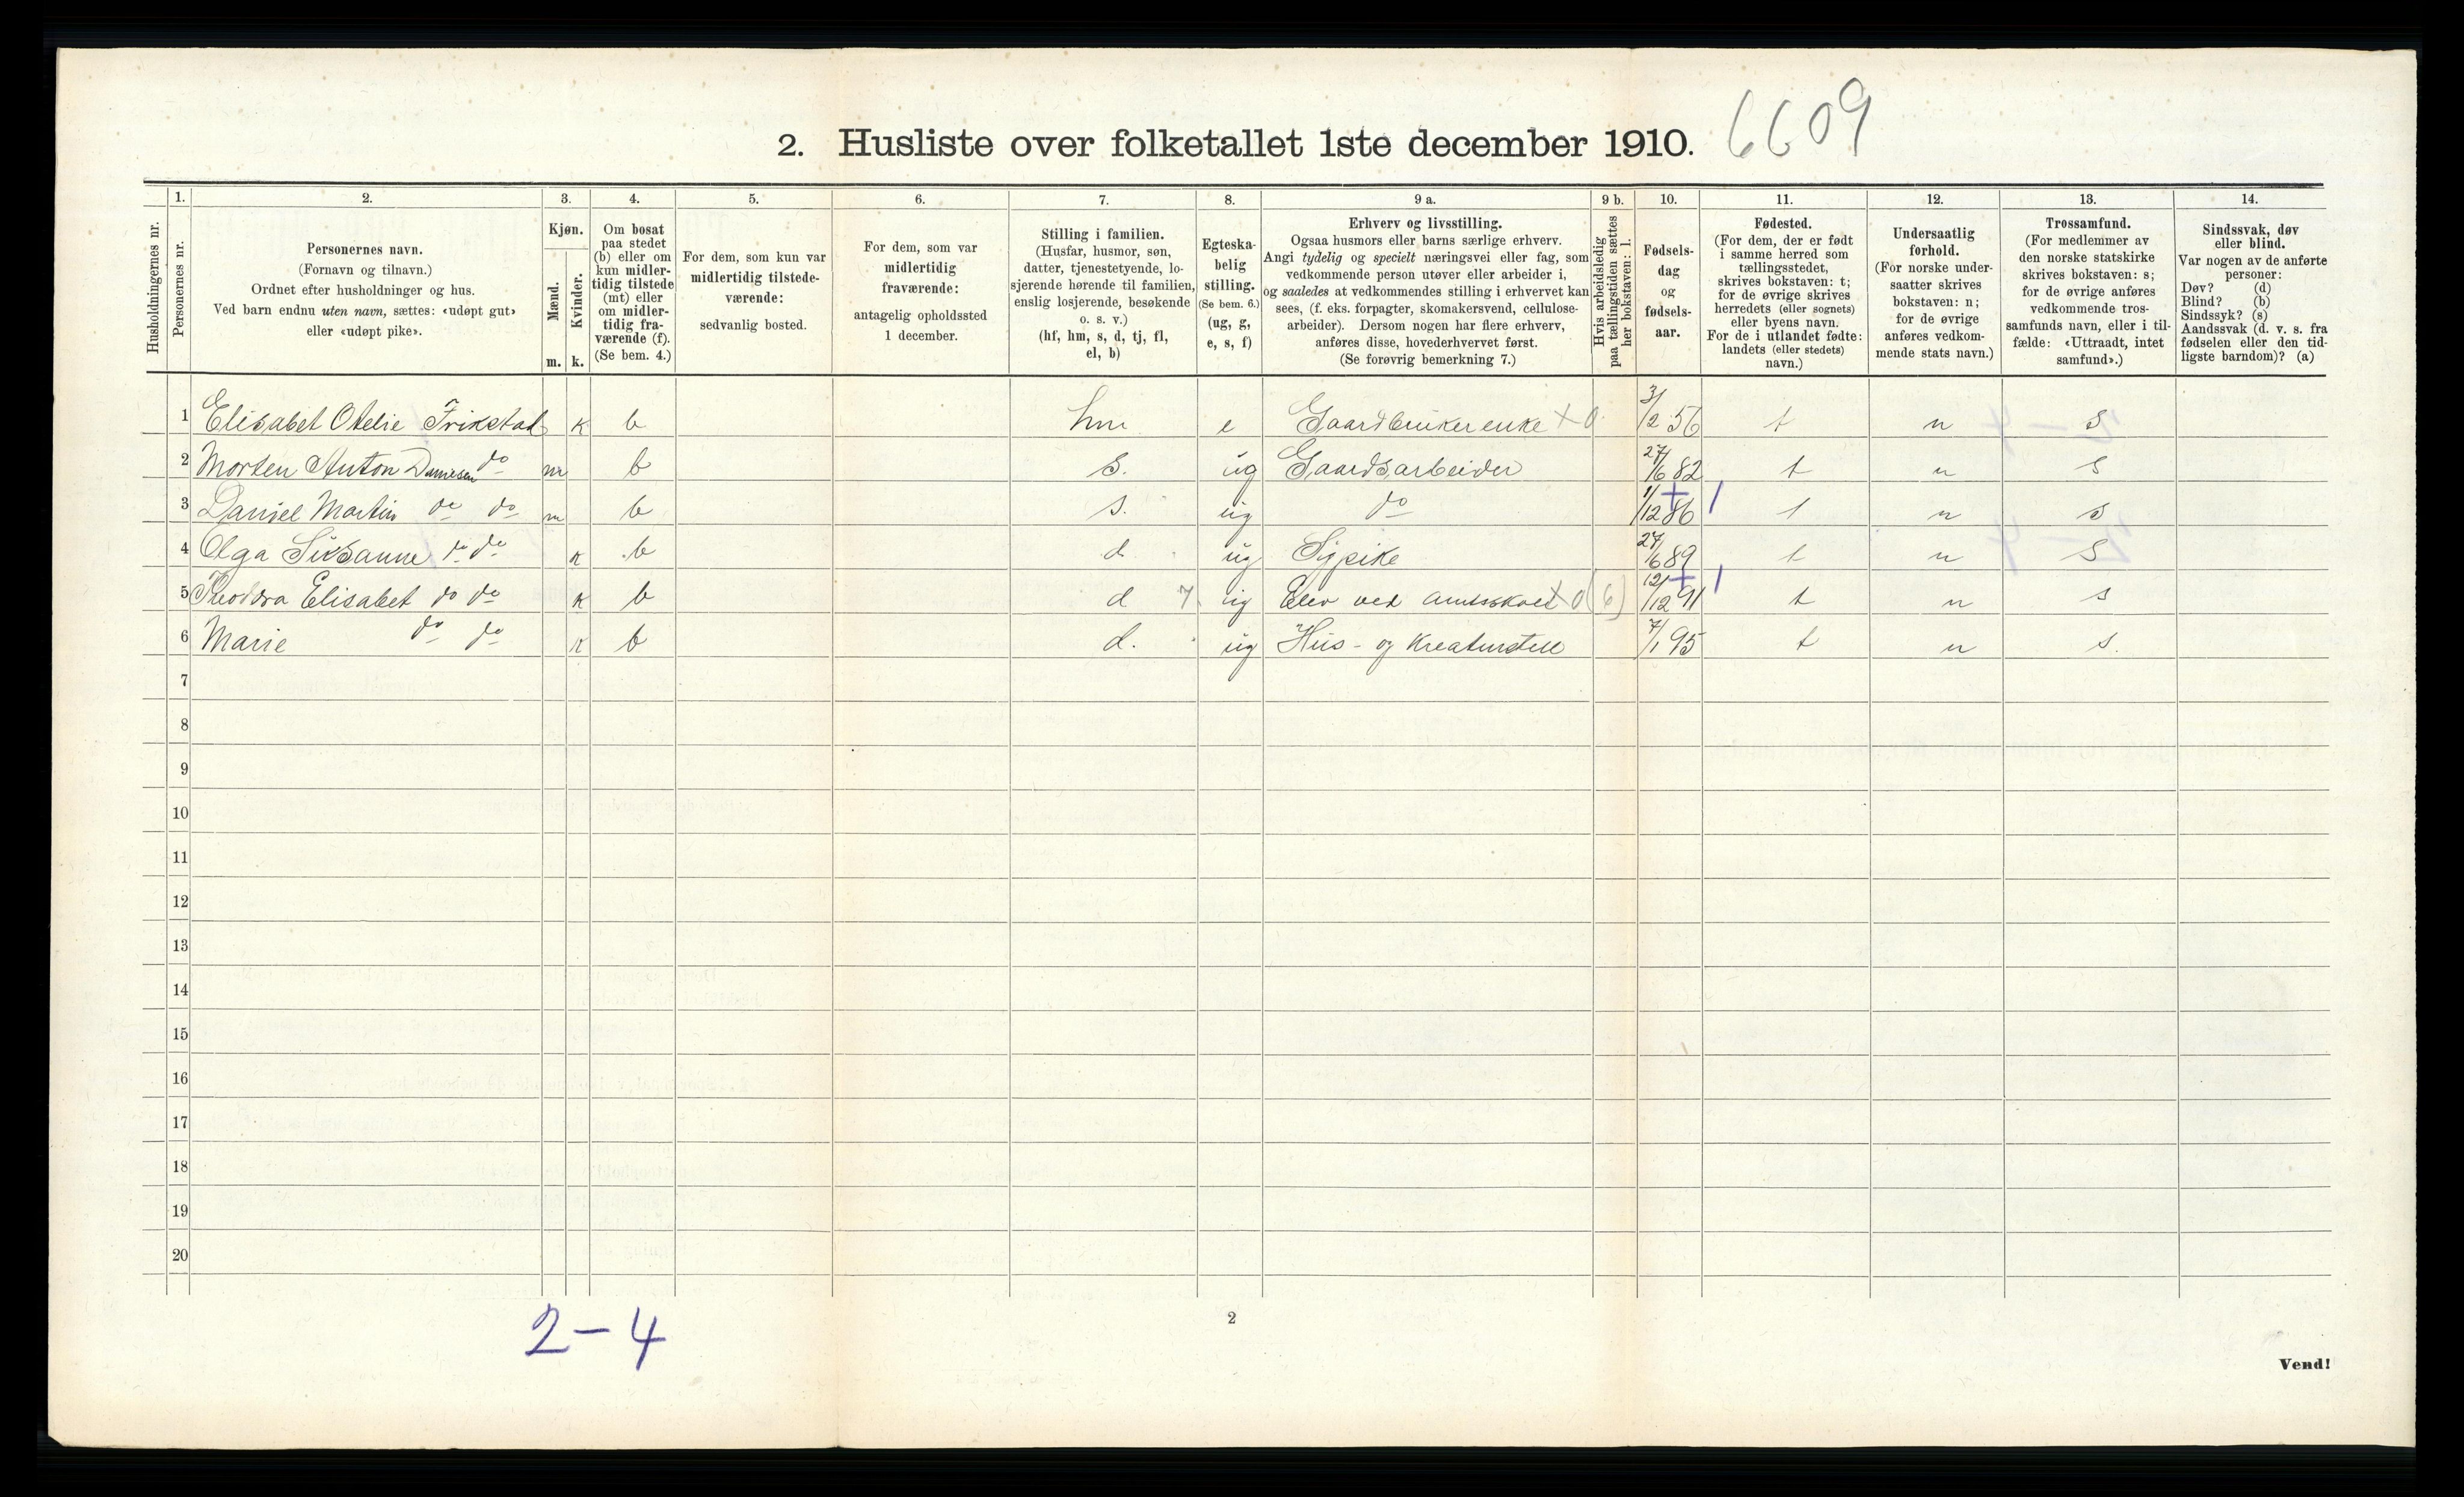 2. Husliste over folketallet 1ste december 1910. 6609
Husholdningernes nr.
1. Personernes nr.
2. Personernes navn. (Fornavn og tilnavn.) Ordnet efter husholdninger og hus. Ved barn endnu uten navn, sættes: «udøpt gut» eller «udøpt pike».
3. Kjøn. Mænd. m. Kvinder. k.
4. Om bosat paa stedet (b) eller om kun midlertidig tilstede (mt) eller om midlertidig fraværende (f). (Se bem. 4.)
5. For dem, som kun var midlertidig tilstedeværende: sedvanlig bosted.
6. For dem, som var midlertidig fraværende: antagelig opholdssted 1 december.
7. Stilling i familien. (Husfar, husmor, søn, datter, tjenestetyende, losjerende hørende til familien, enslig losjerende, besøkende o. s. v.) (hf, hm, s, d, tj, fl, el, b)
8. Egteskabelig stilling. (Se bem. 6.) (ug, g, e, s, f)
9 a. Erhverv og livsstilling. Ogsaa husmors eller barns særlige erhverv. Angi tydelig og specielt næringsvei eller fag, som vedkommende person utøver eller arbeider i, og saaledes at vedkommendes stilling i erhvervet kan sees, (f. eks. forpagter, skomakersvend, cellulosearbeider). Dersom nogen har flere erhverv, anføres disse, hovederhvervet først. (Se forøvrig bemerkning 7.)
9 b. Hvis arbeidsledig paa tællingstiden sættes her bokstaven: l.
10. Fødselsdag og fødselsaar.
11. Fødested. (For dem, der er født i samme herred som tællingsstedet, skrives bokstaven: t; for de øvrige skrives herredets (eller sognets) eller byens navn. For de i utlandet fødte: landets (eller stedets) navn.)
12. Undersaatlig forhold. (For norske undersaatter skrives bokstaven: n; for de øvrige anføres vedkommende stats navn.)
13. Trossamfund. (For medlemmer av den norske statskirke skrives bokstaven: s; for de øvrige anføres vedkommende trossamfunds navn, eller i tilfælde: «Uttraadt, intet samfund».)
14. Sindssvak, døv eller blind. Var nogen av de anførte personer: Døv? (d) Blind? (b) Sindssyk? (s) Aandssvak (d. v. s. fra fødselen eller den tidligste barndom)? (a)
1 Elisabet Otelie Frikstad k b hm e Gaardbrukerenke x 0 3/2 56 t n s
2 Morten Anton Danielsen do m b s. ug Gaardsarbeider 27/6 82 t n s
3 Daniel Martin do do m b s. ug do 1/12 86 t n s
4 Olga Susanne do do k b d ug Sypike 27/6 89 t n s
5 Theodora Elisabet do do k b d 7. ug Elev ved amtsskole x 0 (6) 12/12 91 t n s
6 Marie do do k b d. ug Hus- og kreaturstell 7/1 95 t n s.
7
8
9
10
11
12
13
14
15
16
17
18
19
20
2-4
2
Vend!